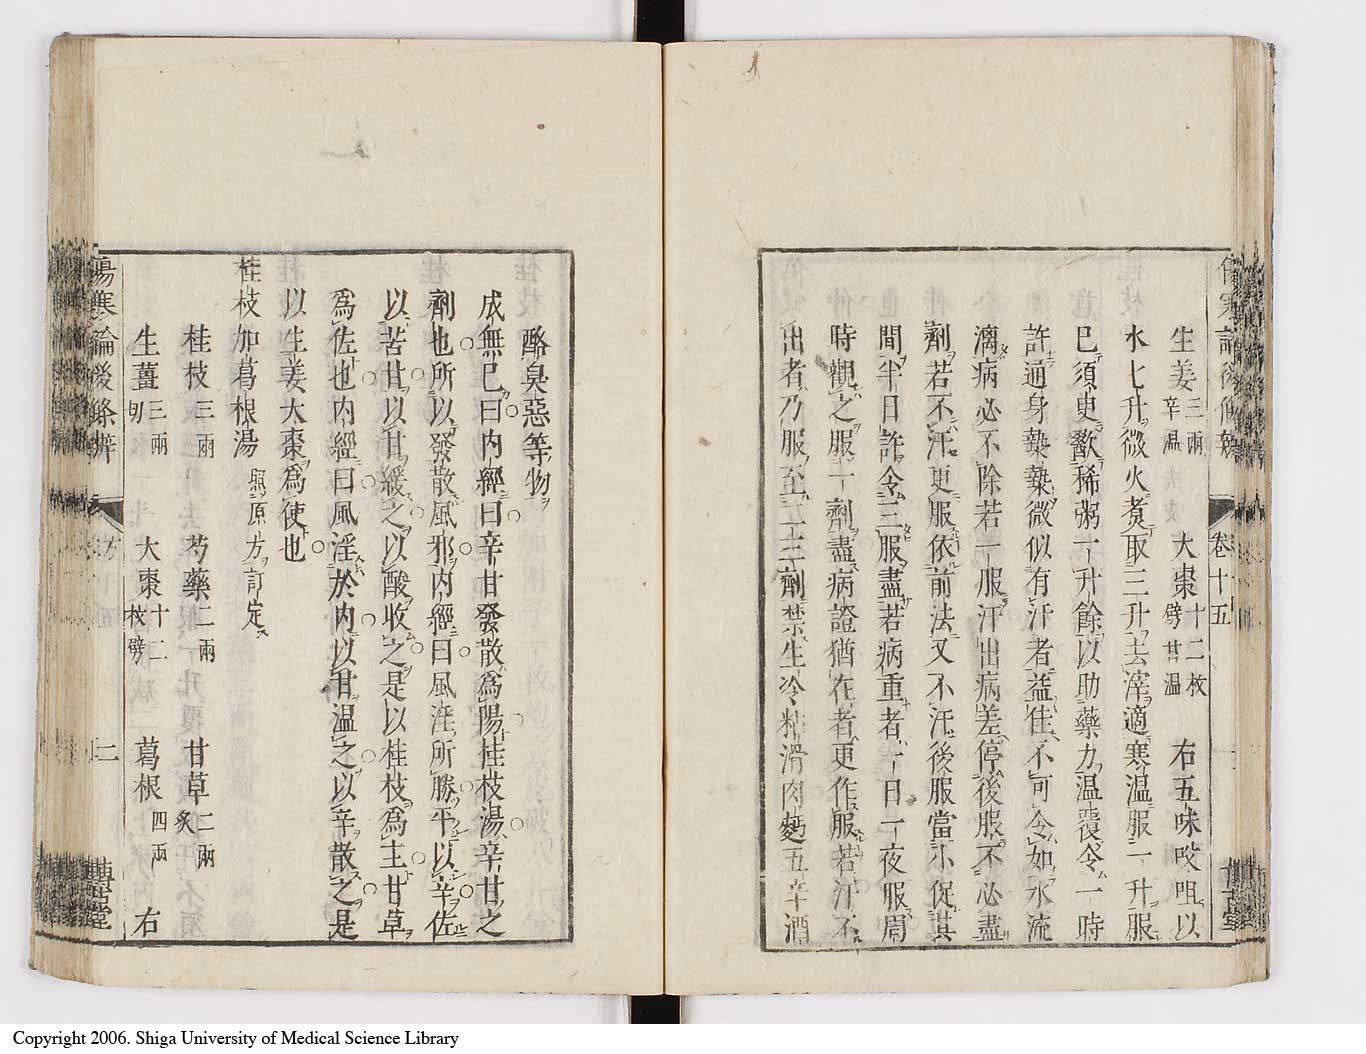 生姜三兩辛溫 大棗十二枚劈甘溫 右五味㕮咀以
水七升微火煮取三升去滓適寒温服一升服
已須臾歠稀粥一升餘以助藥力温覆令一時
許通身漐漐微似有汗者益佳不可令如水流
漓病必不除若一服汗出病差停後服不必盡
劑若不汗更服依前法又不汗後服當小促其
間半日許令三服盡若病重者一日一夜服周
時觀之服一劑盡病證猶在者更作服若汗不
出者乃服至二三劑禁生冷粘滑肉麪五辛酒
卷十五
酪臭惡等物
成無已曰内經曰辛甘發散為陽桂枝湯辛甘之
劑也所以發散風邪内經曰風淫所勝平以辛佐
以苦甘以甘緩之以酸收之是以桂枝為主甘草
為佐也内經曰風淫於内以甘温之以辛散之是
以生姜大棗為使也
桂枝加葛根湯 照原方訂定
桂枝三兩 芍藥二兩 甘草二兩炙
生薑三兩切 大棗十二枚劈 葛根四兩 右
傷寒論後條辨
二
Copyright 2006. Shiga University of Medical Science Library